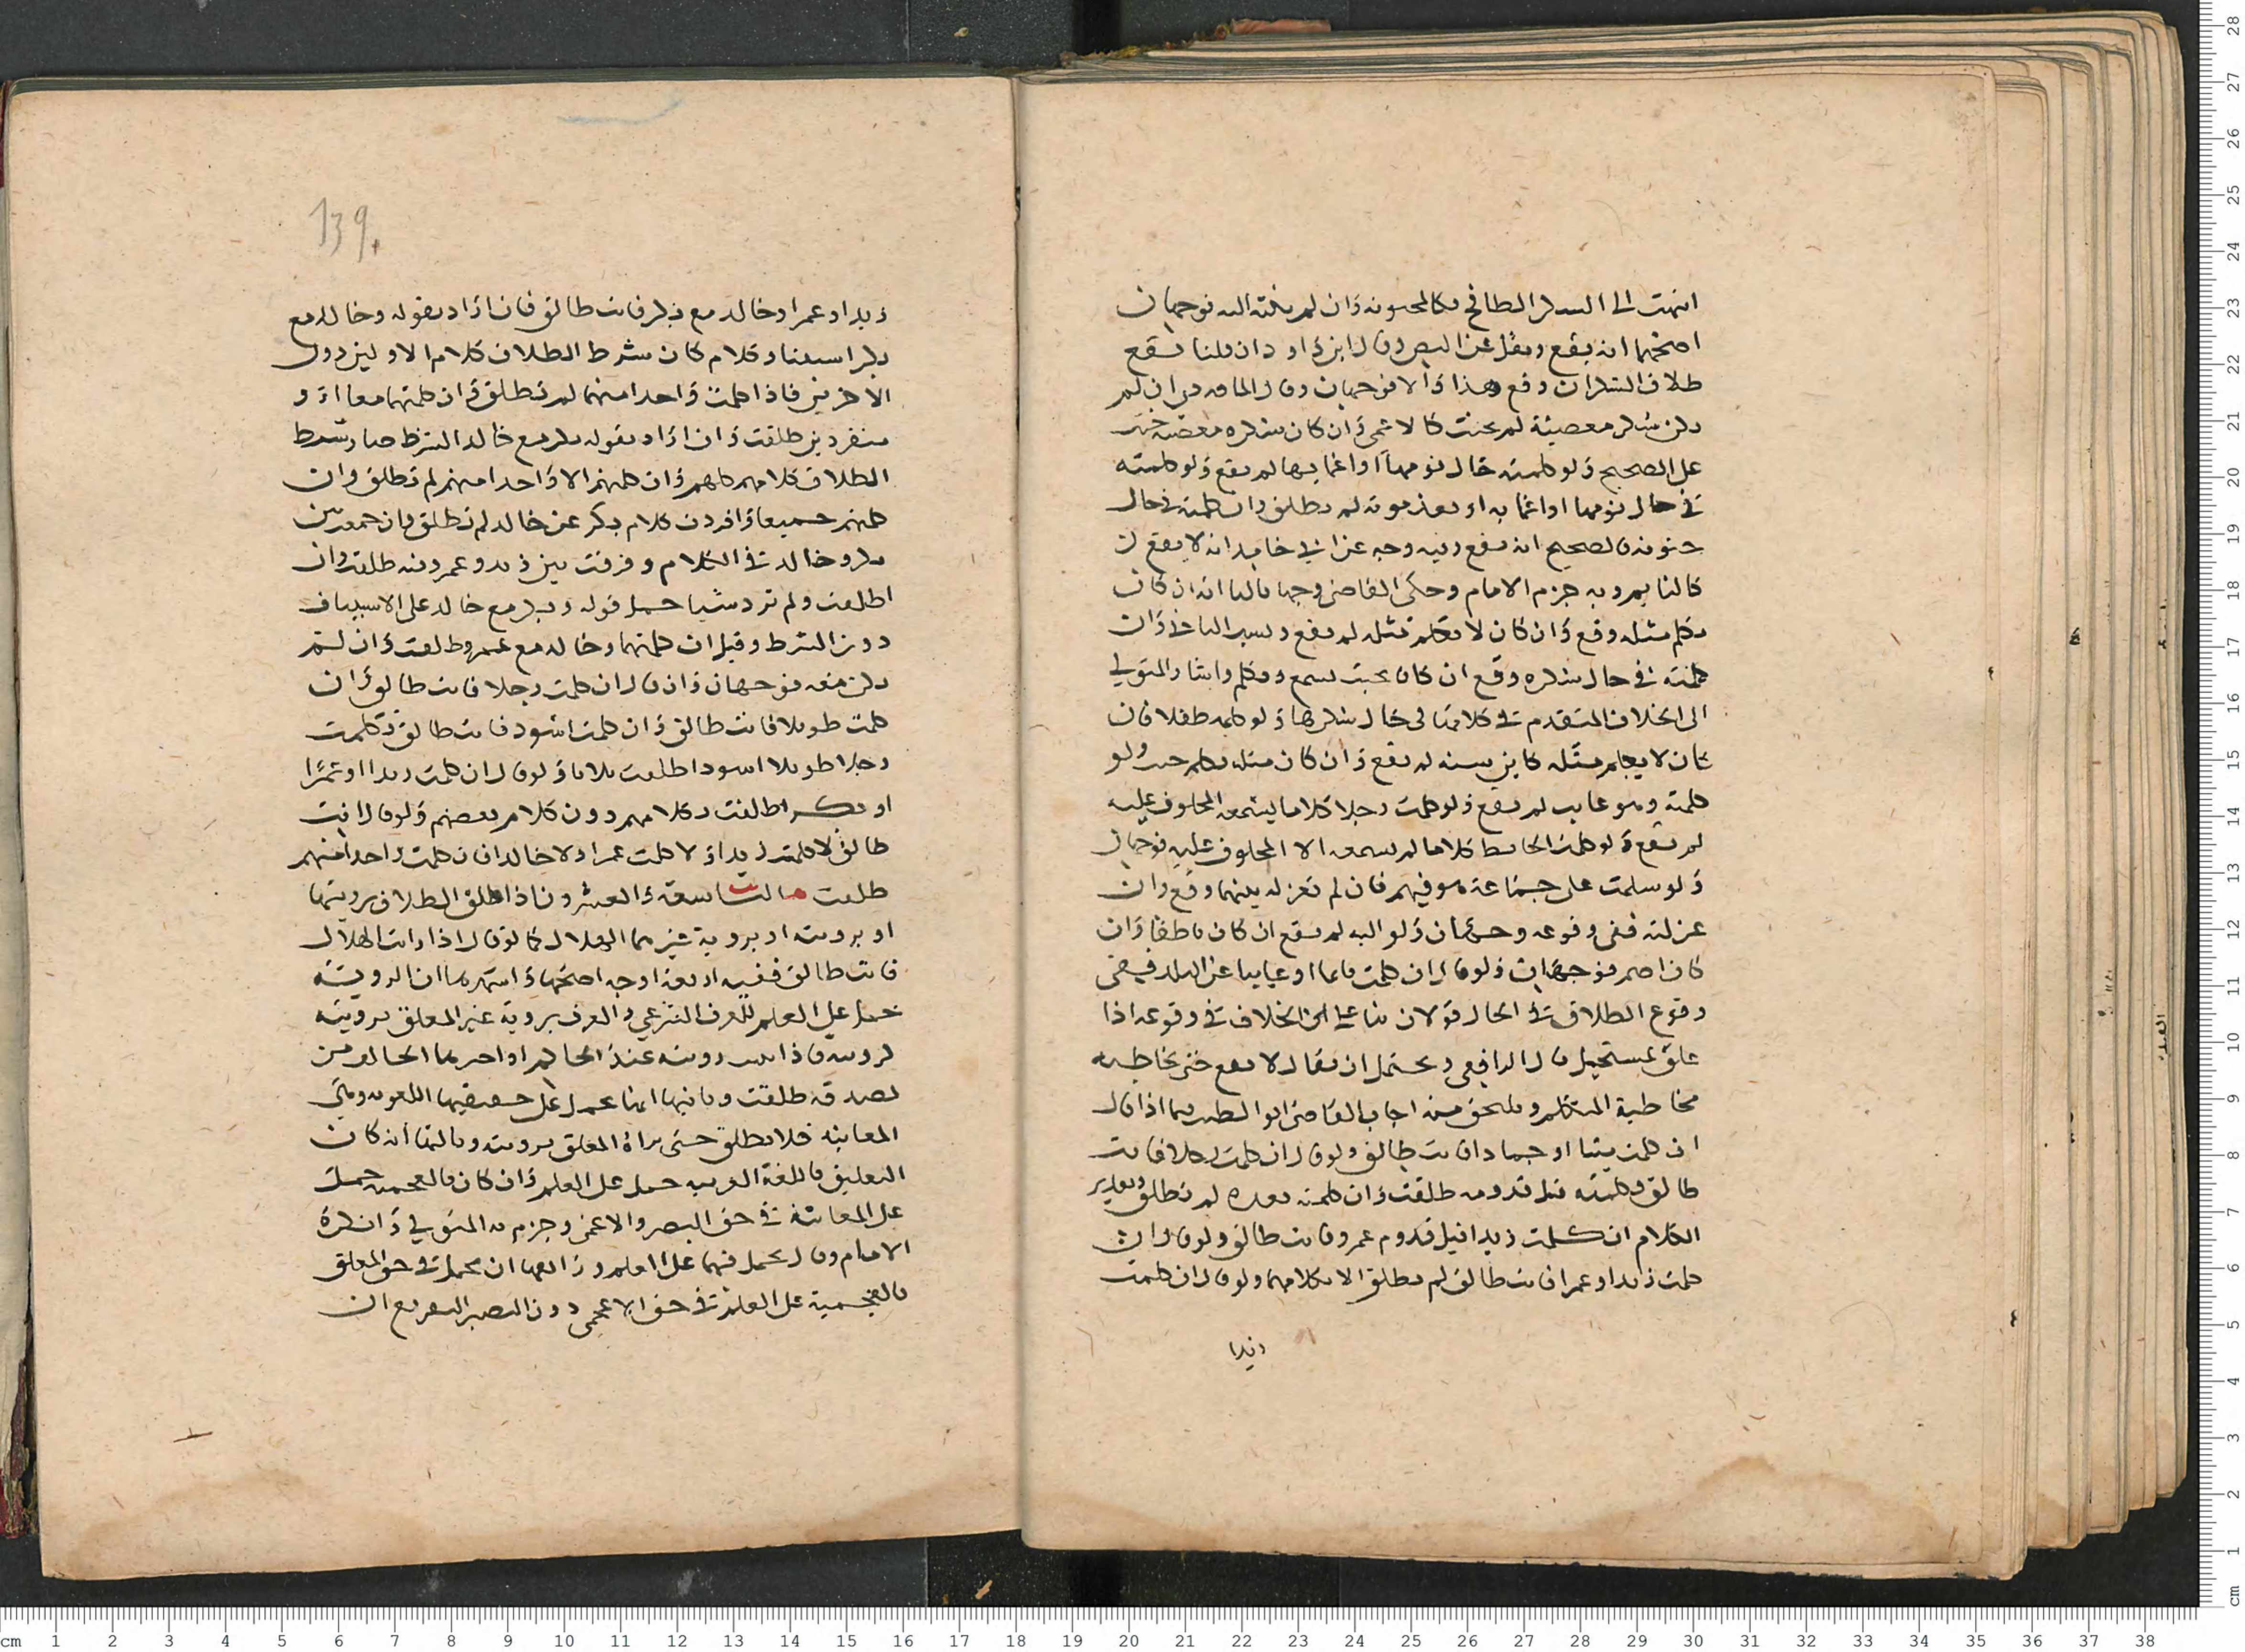 انتهت الى السكر الطافح فكالمجنونه وان لم تنته اليه فوجهان
اصحهما انه يقع ونقل عن البصر وقال ابن داود ان قلنا يقع
طلاق السكران وقع هذا والا فوجهان وقال الماوردي ان لم
يكن سكر معصية لم يحنث كالاعمى وان كان سكره معصية حنث
على الصحيح ولو كلمته حال نومها او اغمايها لم يقع ولو كلمته
في حال نومه او اغمايه او بعد موته لم تطلق وان كلمته في حال
جنونه فالصحيح انه يقع وفيه وجه عن ابي حامد انه لا يقع
كالنايم وبه جزم الامام وحكى القاضي وجها ثالثا انه ان كان
يكلم مثله وقع وان كان لا يكلم مثله لم يقع وان
كلمته في حال سكره وقع ان كان بحيث يسمع ويكلم واشار المتولي
الى الخلاف المتقدم في كلامها في حال سكرها ولو كلمه طفلا فان
كان لا يكلم مثله كابن سنه لم يقع وان كان مثله يكلم حنث ولو
كلمته وهو غايب لم يقع ولو كلمت رجلا كلاما ليسمعه المحلوف عليه
لم يقع ولو كلمت الحايط كلاما لم يسمعه الا المحلوف عليه فوجهان
ولو سلمت على جماعة هو فيهم فان لم تعزله بنيتها وقع وان
عزلته ففي وقوعه وجهان ولو اليه لم يقع ان كان ناطقا وان
كان اصم فوجهان ولو قال ان كلمت نايما او غايبا عن البلد ففي
وقوع الطلاق في الحال قولان بناء على الخلاف في وقوعه اذا
علق بمستحيل قال الرافعي ويحتمل ان يقال لا يقع حتى يخاطبه
مخاطبة المتكلم وملتحق من اجاب القاضي ابو الطيب فيما اذا قال
ان كلمت ميتا او جمادا فانت طالق ولو قال ان كلمت رجلا فانت
طالق وكلمته قبل قدومه طلقت وان كلمته بعده لم تطلق وتقدير
الكلام ان كلمت زيدا قبل قدوم عمرو فانت طالق ولو قال ان
كلمت زيدا وعمرا فانت طالق لم تطلق الا بكلامهما ولو قال ان كلمت
زيدا
139
زيدا وعمرا وخالد مع بكر فانت طالق فان اراد بقوله وخالد مع
بكر استيناف كلام كان شرط الطلاق كلام الاولين دون
الاخرين فاذا كلمت واحدا منهما لم تطلق وان كلمتهما معا او
منفردين طلقت وان اراد بقوله بكر مع خالد الشرط صار شرط
الطلاق كلامهم كلهم وان كلمتهم الا واحدا منهم لم تطلق وان
كلمتهم جميعا وافردت كلام بكر عن خالد لم تطلق وان جمعت بين
بكر وخالد في الكلام وفرقت بين زيد وعمرو فيه طلقت وان
اطلقت ولم ترد شيا حمل قوله وبكر مع خالد على الاستيناف
دون الشرط وقيل ان كلمتهما وخالد مع عمرو طلقت وان لم
يكن معه فوجهان وان قال ان كلمت رجلا فانت طالق وان
كلمت طويلا فانت طالق وان كلمت اسود فانت طالق وكلمت
رجلا طويلا اسود اطلقت ثلاثا ولو قال ان كلمت زيدا او عمرا
او بكرا طلقت بكلامهم دون كلام بعضهم ولو قال انت
طالق لا كلمت زيدا ولا كلمت عمرا ولا خالدا فان كلمت واحدا منهم
طلقت التاسعة والعشرون اذا علق الطلاق برويتها
او برويته او بروية غيرهما الهلال كما لو قال اذا رايت الهلال
فانت طالق ففيه اربعة اوجه اصحها واشهرها ان الرويه
تحمل على العلم للعرف الشرعي والعرف بروية غير المعلق برويته
كرويته فاذا رويته عند الحاكم او اخرهما الحالف من
تصدقه طلقت وثانيها انها تحمل على حقيقتها اللغويه وهي
المعاينه فلا تطلق حتى يراه المعلق برويته وثالثها انه كان
التعليق باللغة العربيه حمل على العلم وان كان بالعجميه حمل
على المعاينة في حق البصير والاعمى وجزم به المتولي وانكره
الامام وقال تحمل فيهما على العلم ورابعها ان تحمل في حق المعلق
بالعجمية على العلم في حق الاعمى دون البصير التفريع ان